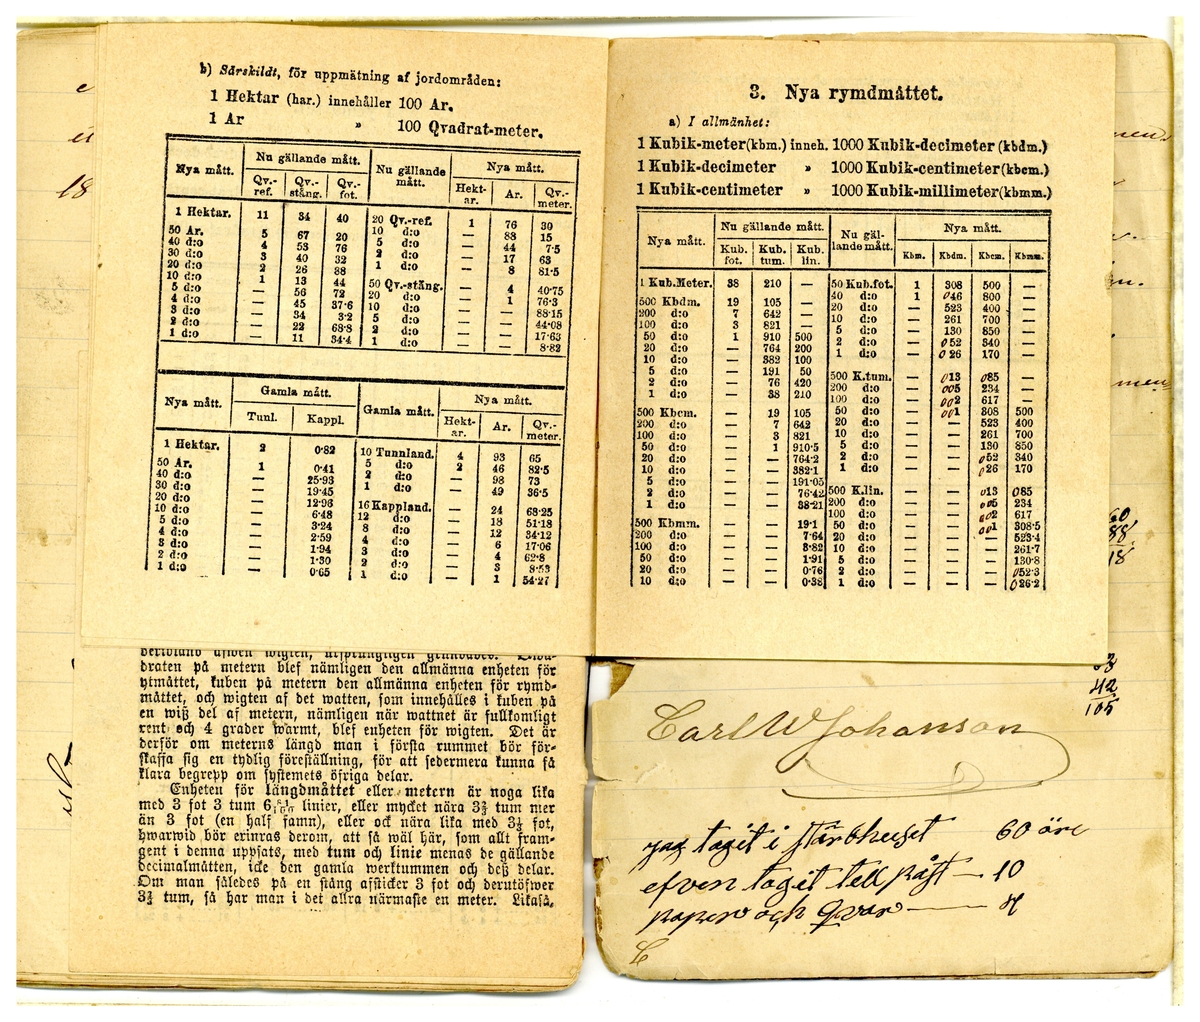 b) Särskildt, för uppmätning af jordområden:
1 Hektar (har.) innehåller 100 Ar.
1 Ar » 100 Qvadrat-meter.
Nya mått. Nu gällande mått. Nu gällande mått. Nya mått.
Qv.-ref. Qv.-stång. Qv.-fot. Hekt-ar. Ar. Qv.-meter.
1 Hektar. 11 34 40 20 Qv.-ref. 1 76 30
50 Ar. 5 67 20 10 d:o — 88 15
40 d:o 4 53 76 5 d:o — 44 7·5
30 d:o 3 40 32 2 d:o — 17 63
20 d:o 2 26 88 1 d:o — 8 81·5
10 d:o 1 13 44 50 Qv.-stång. — 4 40·75
5 d:o — 56 72 20 d:o — 1 76·3
4 d:o — 45 37·6 10 d:o — — 88·15
3 d:o — 34 3·2 5 d:o — — 44·08
2 d:o — 22 68·8 2 d:o — — 17·63
1 d:o — 11 34·4 1 d:o — — 8·82
Nya mått. Gamla mått. Gamla mått. Nya mått.
Tunl. Kappl. Hekt-ar. Ar. Qv.-meter.
1 Hektar. 2 0·82 10 Tunnland. 4 93 65
50 Ar. 1 0·41 5 d:o 2 46 82·5
40 d:o — 25·93 2 d:o — 98 73
30 d:o — 19·45 1 d:o — 49 36·5
20 d:o — 12·96 16 Kappland. — 24 68·25
10 d:o — 6·48 12 d:o — 18 51·18
5 d:o — 3·24 8 d:o — 12 34·12
4 d:o — 2·59 4 d:o — 6 17·06
3 d:o — 1·94 3 d:o — 4 62·8
2 d:o — 1·30 2 d:o — 3 8·53
1 d:o — 0·65 1 d:o — 1 54·27
draten på metern blef nämligen den allmänna enheten för
ytmåttet, kuben på metern den allmänna enheten för rymd-
måttet, och wigten af det watten, som innehålles i kuben på
en wiß del af metern, nämligen när wattnet är fullkomligt
rent och 4 grader warmt, blef enheten för wigten. Det är
derför om meterns längd man i första rummet bör för-
skaffa sig en tydlig föreställning, för att sedermera kunna få
klara begrepp om systemets öfriga delar.
Enheten för längdmåttet eller metern är noga lika
med 3 fot 3 tum 6 81/100 linier, eller mycket nära 3⅔ tum mer
än 3 fot (en half famn), eller ock nära lika med 3⅓ fot,
hwarwid bör erinras derom, att så wäl här, som allt fram-
gent i denna uppsats, med tum och linie menas de gällande
decimalmåtten, icke den gamla werktummen och deß delar.
Om man således på en stång afsticker 3 fot och derutöfwer
3⅔ tum, så har man i det allra närmaste en meter. Likaså,
3. Nya rymdmåttet.
a) I allmänhet:
1 Kubik-meter (kbm.) inneh. 1000 Kubik-decimeter (kbdm.)
1 Kubik-decimeter » 1000 Kubik-centimeter (kbcm.)
1 Kubik-centimeter » 1000 Kubik-millimeter (kbmm.)
Nya mått. Nu gällande mått. Nu gäl-lande mått. Nya mått.
Kub. fot. Kub. tum. Kub. lin. Kbm. Kbdm. Kbcm. Kbmm.
1 Kub.Meter. 38 210 — 50 Kub.fot. 1 308 500 —
500 Kbdm. 19 105 — 40 d:o 1 046 800 —
200 d:o 7 642 — 20 d:o — 523 400 —
100 d:o 3 821 — 10 d:o — 261 700 —
50 d:o 1 910 500 5 d:o — 130 850 —
20 d:o — 764 200 2 d:o — 052 340 —
10 d:o — 382 100 1 d:o — 026 170 —
5 d:o — 191 50 500 K.tum. — 013 085 —
2 d:o — 76 420 200 d:o — 005 234 —
1 d:o — 38 210 100 d:o — 002 617 —
500 Kbcm. — 19 105 50 d:o — 001 308 500
200 d:o — 7 642 20 d:o — — 523 400
100 d:o — 3 821 10 d:o — — 261 700
50 d:o — 1 910·5 5 d:o — — 130 850
20 d:o — — 764·2 2 d:o — — 052 340
10 d:o — — 382·1 1 d:o — — 026 170
5 d:o — — 191·05
2 d:o — — 76·42 500 K.lin. — — 013 085
1 d:o — — 38·21 200 d:o — — 005 234
100 d:o — — 002 617
500 Kbmm. — — 19·1 50 d:o — — 001 308·5
200 d:o — — 7·64 20 d:o — — — 523·4
100 d:o — — 3·82 10 d:o — — — 261·7
50 d:o — — 1·91 5 d:o — — — 130·8
20 d:o — — 0·76 2 d:o — — — 052·3
10 d:o — — 0·38 1 d:o — — — 026·2
Carl W Johanson
jag tagit i stärbhuset 60 öre
efven tagit tell påst — 10
paper och qvar — 4
18
60
88
18
42
105